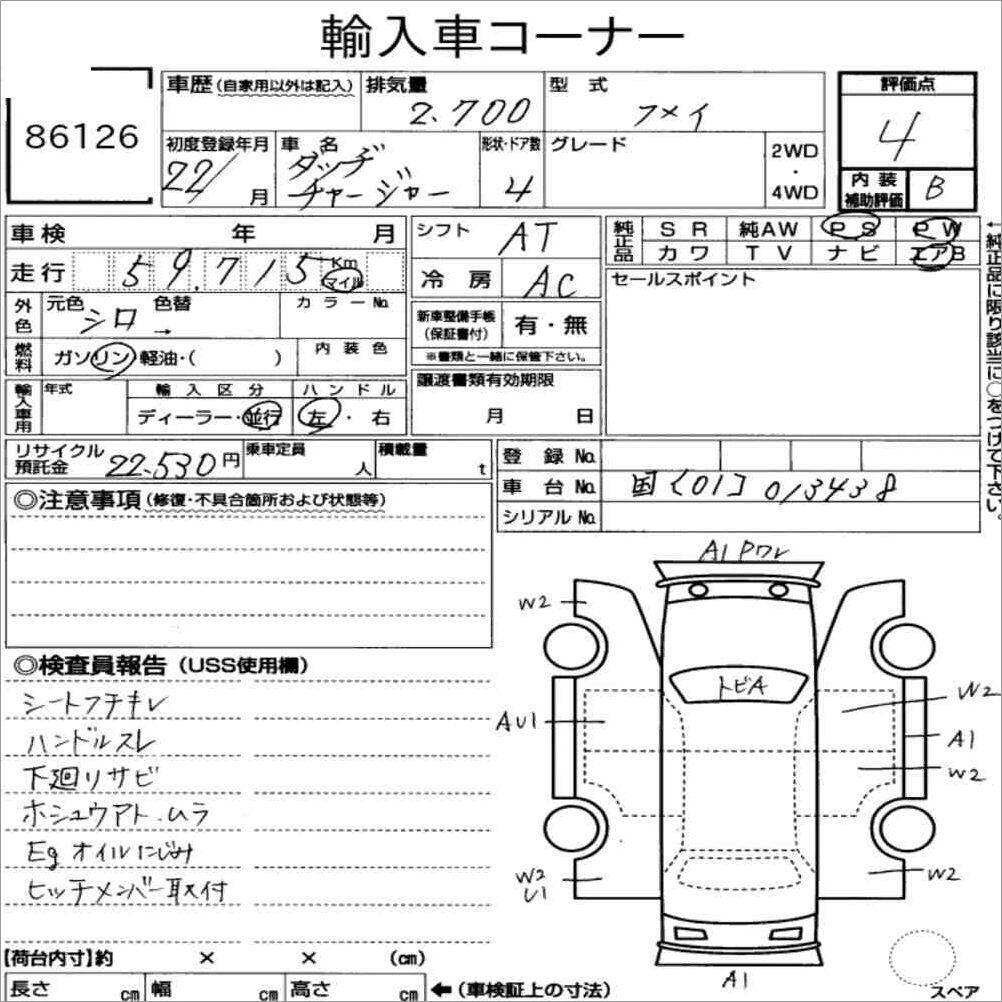 輸入車コーナー
86126
車歴(自家用以外は記入) 排気量 型 式 評価点
2.700 フメイ 4
初度登録年月 車 名 形状・ドア数 グレード 2WD・4WD
22/ 月 ダッヂ チャージャー 4
内装補助評価 B
車検 年 月 シフト AT
走行 59.715 Km マイル 冷 房 AC
純正品 SR 純AW PS PW
カワ TV ナビ エアB
←純正品に限り該当に○をつけて下さい。
外色 元色 シロ → 色替 カラーNo.
新車整備手帳(保証書付) 有・無
※書類と一緒に保管下さい。
セールスポイント
燃料 ガソリン 軽油・( ) 内装色
譲渡書類有効期限
月 日
輸入車用 年式 輸入区分 ハンドル
ディーラー・並行 左・右
リサイクル預託金 22.530円 乗車定員 人 積載量 t
登録 No.
車台 No. 国[01]013438
シリアル No.
◎注意事項(修復・不具合箇所および状態等)
◎検査員報告(USS使用欄)
シートフチキレ
ハンドルスレ
下廻リサビ
ホシュウアト.ムラ
Eg オイルにじみ
ヒッチメンバー取付
A1 Pワレ
W2
トビA
W2
AU1
A1
W2
W2
U1
W2
A1
スペア
【荷台内寸】約 × × (cm)
長さ cm 幅 cm 高さ cm ←(車検証上の寸法)